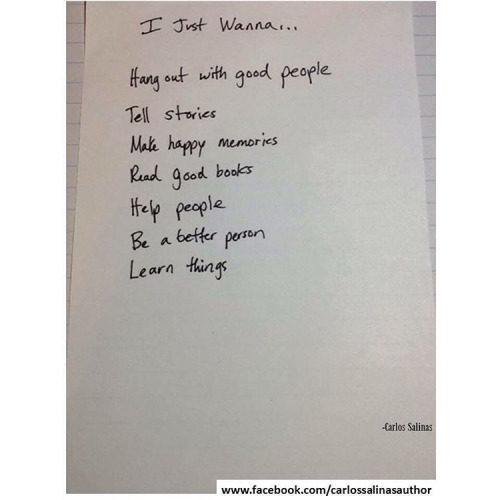 I Just Wanna...
Hang out with good people
Tell stories
Make happy memories
Read good books
Help people
Be a better person
Learn things
-Carlos Salinas
www.facebook.com/carlossalinasauthor